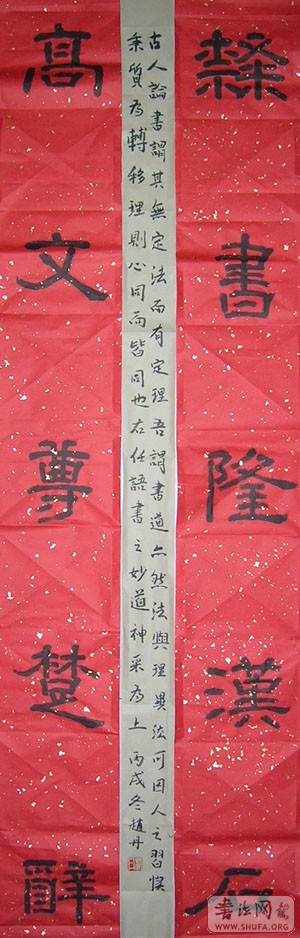 隸書隆漢石
古人論書謂其無定法而有定理吾謂書道亦然法與理異法可因人之習慣
秉質為轉移理則心同而皆同也右任語書之妙道神采為上丙戌冬趙丹
高文尊楚辭
書法网
WWW.SHUFA.ORG